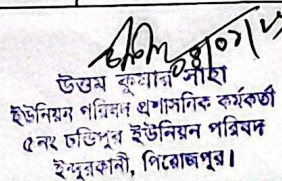 ০৪/০৭/২৫
উত্তম কুমার সাহা
ইউনিয়ন পরিষদ প্রশাসনিক কর্মকর্তা
৫নং চন্ডিপুর ইউনিয়ন পরিষদ
ইন্দুরকানী, পিরোজপুর।